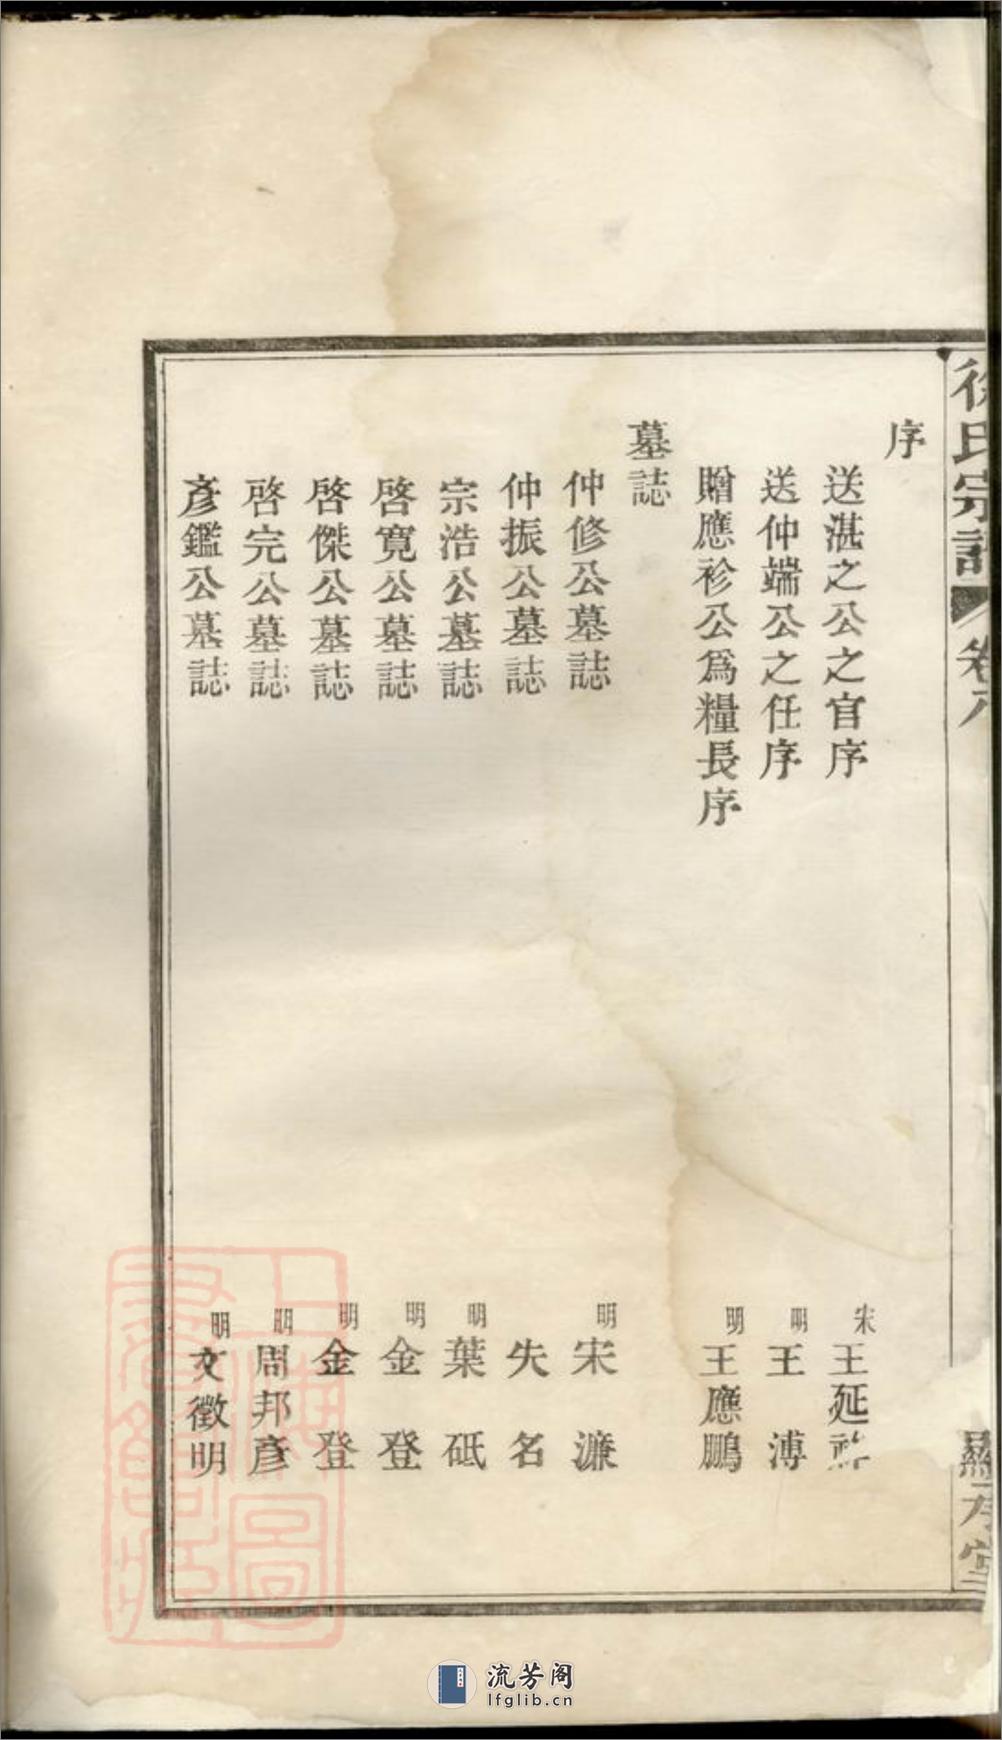 徐氏宗譜 卷六
序
送湛之公之官序 宋 王延
送仲端公之任序 明 王溥
贈應袗公爲糧長序 明 王應鵬
墓誌
仲修公墓誌 明 宋濂
仲振公墓誌 失名
宗浩公墓誌 明 葉砥
啓寬公墓誌 明 金登
啓傑公墓誌 明 金登
啓完公墓誌 明 周邦彥
彥鑑公墓誌 明 文徵明
上海圖書館藏
流芳阁
lfglib.cn